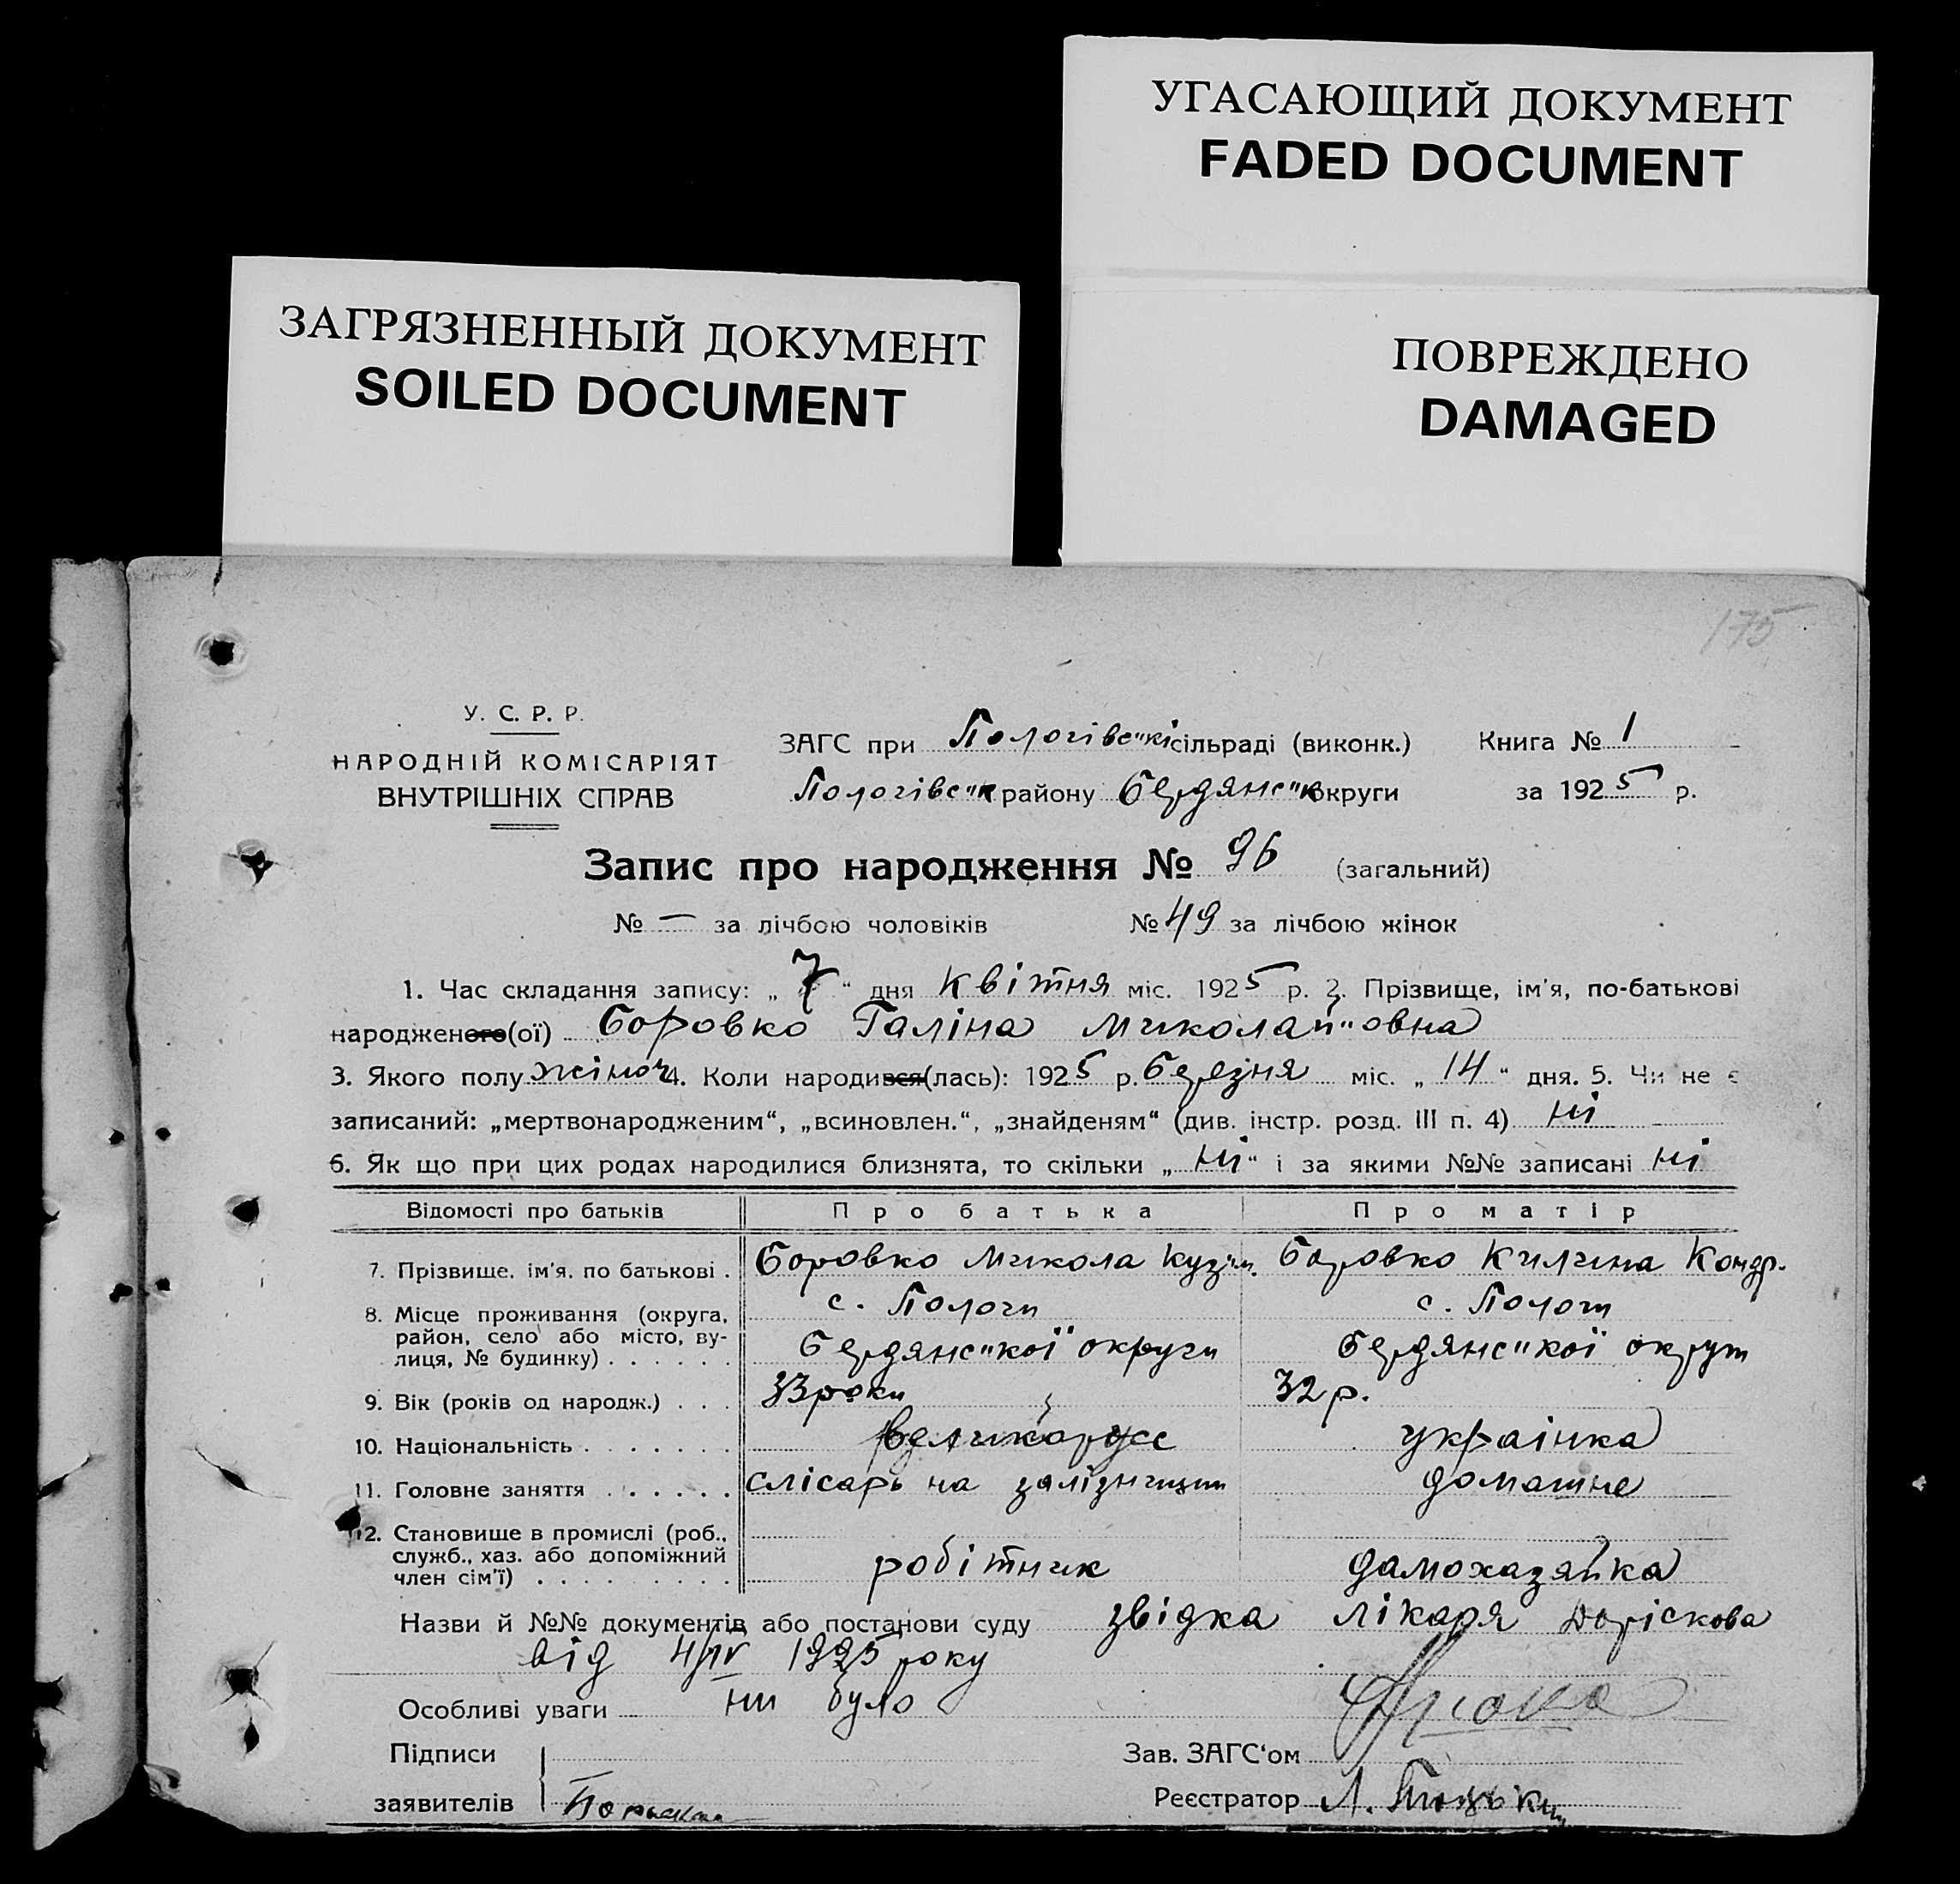 УГАСАЮЩИЙ ДОКУМЕНТ
FADED DOCUMENT
ЗАГРЯЗНЕННЫЙ ДОКУМЕНТ
SOILED DOCUMENT
ПОВРЕЖДЕНО
DAMAGED
175
У. С. Р. Р.
НАРОДНІЙ КОМІСАРІЯТ
ВНУТРІШНІХ СПРАВ
ЗАГС при Пологівс"кі сільраді (виконк.) Книга № 1
Пологівс"к району Бердянс"к округи за 1925 р.
Запис про народження № 96 (загальний)
№ — за лічбою чоловіків № 49 за лічбою жінок
1. Час складання запису: „ 7 “ дня квітня міс. 1925 р. 2. Прізвище, ім'я, по-батькові
народженого(ої) Боровко Галіна Миколай"овна
3. Якого полу жіноч 4. Коли народився(лась): 1925 р. Березня міс. „ 14 “ дня. 5. Чи не є
записаний: „мертвонародженим“, „всиновлен.“, „знайденям“ (див. інстр. розд. III п. 4) ні
6. Як що при цих родах народилися близнята, то скільки „ ні “ і за якими №№ записані ні
Відомості про батьків Про батька Про матір
7. Прізвище, ім'я, по батькові . Боровко Микола Кузім. Боровко Килина Кондр.
8. Місце проживання (округа, с. Пологи с. Пологи
район, село або місто, ву-
лиця, № будинку) . . . . . . Бердянс"кої округи Бердянс"кої округи
9. Вік (років од народж.) . . . 33 роки 32 р.
10. Національність . . . . . . . великорусс українка
11. Головне заняття . . . . . . слісарь на залізниции домашне
12. Становище в промислі (роб.,
служб., хаз. або допоміжний
член сім'ї) . . . . . . . . . робітник дамохазяйка
Назви й №№ документів або постанови суду звідка лікаря
від 4/IV 1925 року
Особливі уваги ни було
Підписи Зав. ЗАГС'ом
заявителів Реєстратор Л.